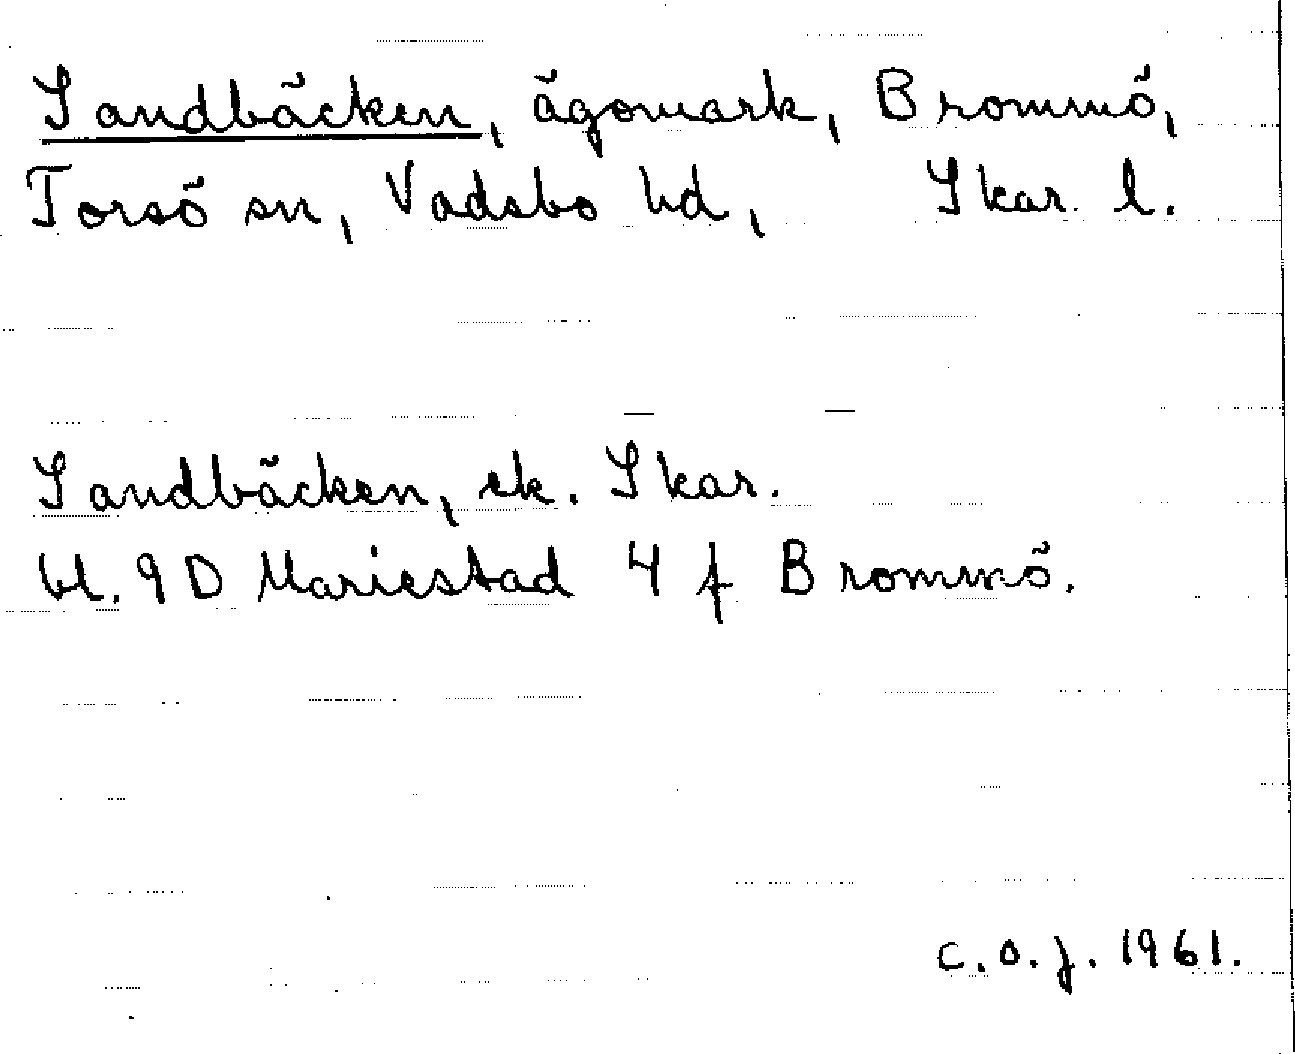 Sandbäcken, ägomark, Brommö,
Torsö sn, Vadsbo hd, Skar. l.
Sandbäcken, ek. Skar.
bl. 9D Mariestad 4 f Brommö.
C.O.J. 1961.